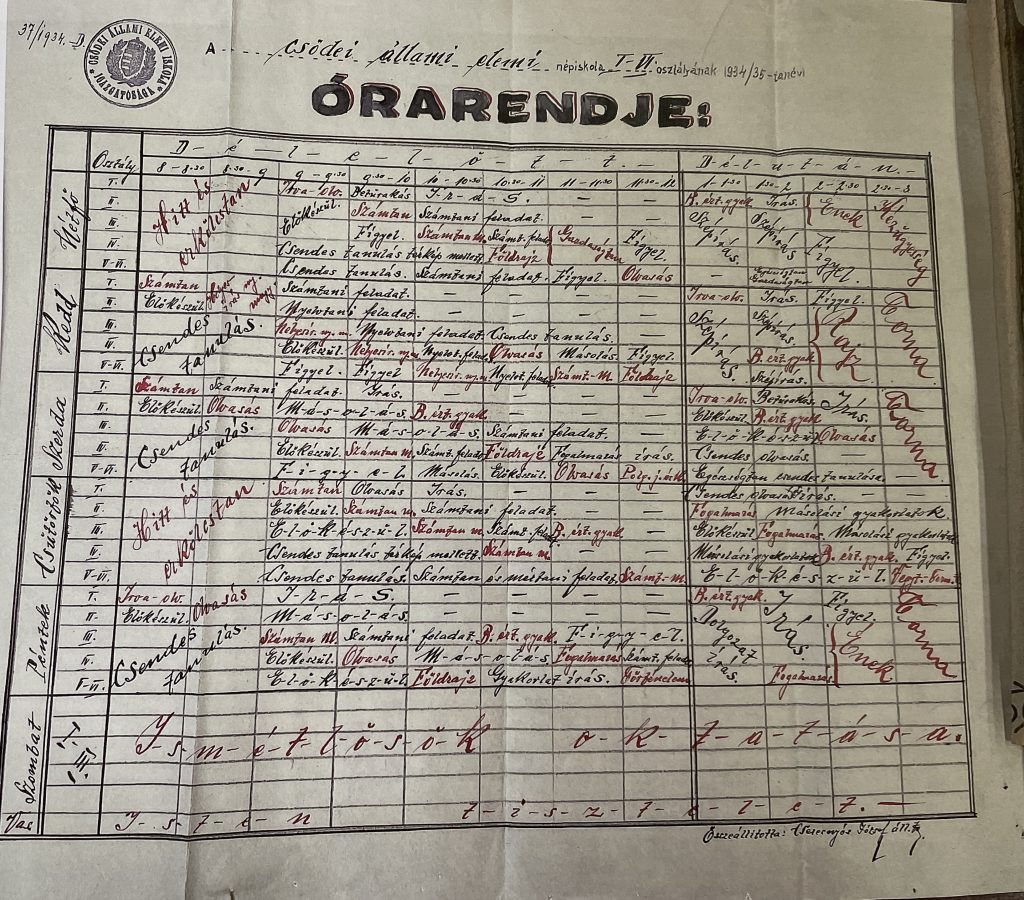 37/1934. D.
CSÖDEI ÁLLAMI ELEMI ISKOLA IGAZGATÓSÁGA
A csödei állami elemi népiskola I-VI. osztályának 1934/35-tanévi
ÓRARENDJE:
Osztály D-é-l-e-l-ő-t-t. D-é-l-u-t-á-n.
8-8.30 8.30-9 9-9.30 9.30-10 10-10.30 10.30-11 11-11.30 11.30-12 1-1.30 1.30-2 2-2.30 2.30-3
Hétfő Hitt és erkölcstan
I. Irva-olv. Betűrakás I-r-á-s. — — — B. ért. gyak. Irás. Ének Kézügyesség
II. Előkészül. Számtan Számtani feladat. — — Szépirás. Szépirás
III. Figyel. Számtan m. Számt. felad. Gazdaságtan Figyel Figyel.
IV. Csendes tanulás térkép mellett. Földrajz
V-VI. Csendes tanulás. Számtani feladat. Figyel. Olvasás — Egészségtan Gazdaságtan
Kedd
I. Számtan Számtani feladat. — — — Irva-olv. Irás. Figyel. Torna
II. Előkészül. Nyelvtani feladat. — — — — Szépirás. Szépirás. Rajz
III. Csendes tanulás. Helyesir. ny. m. Nyelvtani feladat. Csendes tanulás.
IV. Előkészül. Helyesir. ny. m. Nyelvt. felad. Olvasás Másolás. Figyel. B. ért. gyak
V-VI. Figyel. Figyel Helyesir. ny. m. Nyelvt. felad. Számt-m. Földrajz Szépirás.
Szerda
I. Számtan Számtani feladat. Irás. — — — Irva-olv. Betűrakás Irás. Torna
II. Előkészül. Olvasás M-á-s-o-l-á-s. B. ért. gyak. — — Előkészül. B. ért. gyak
III. Csendes tanulás. Olvasás M-á-s-o-l-á-s. Számtani feladat. — E-l-ő-k-é-s-z-ü-l. Olvasás
IV. Előkészül. Számtan m. Számt. felad. Földrajz Fogalmazás irás. Csendes olvasás.
V-VI. F-i-g-y-e-l. Másolás. Előkészül. Olvasás Polg. j. é. k. Egészségtan csendes tanulása.
Csütörtök Hitt és erkölcstan
I. Számtan Olvasás Irás. — — — Csendes olvasás. Irás. —
II. Előkészül. Számtan m. Számtani feladat. — — Fogalmazás Másolási gyakorlatok.
III. E-l-ő-k-é-s-z-ü-l. Számtan m. Számt. felad. B. ért. gyak. — Előkészül. Fogalmazás. Másolási gyakorlatok
IV. Csendes tanulás térkép mellett. Számtan m. — — B. ért. gyak. Figyel.
V-VI. Csendes tanulás. Számtan és mértani feladat. Számt-m. E-l-ő-k-é-s-z-ü-l.
Péntek
I. Irva-olv. Olvasás I-r-á-s. — — — — B. ért. gyak. Irás. Figyel. Torna
II. Előkészül. M-á-s-o-l-á-s. — — — — Dolgozat irás. Ének
III. Csendes tanulás. Számtan m. Számtani feladat. B. ért. gyak. F-i-g-y-e-l.
IV. Előkészül. Olvasás M-á-s-o-l-á-s. Fogalmazás Számt. felad.
V-VI. E-l-ő-k-é-s-z-ü-l. Földrajz Gyakorlat irás. Történelem Fogalmazás.
Szombat I-s-m-é-t-l-ő-s-ö-k o-k-t-a-t-á-s-a.
Vas. I-s-t-e-n t-i-s-z-t-e-l-e-t.
Összeállította: